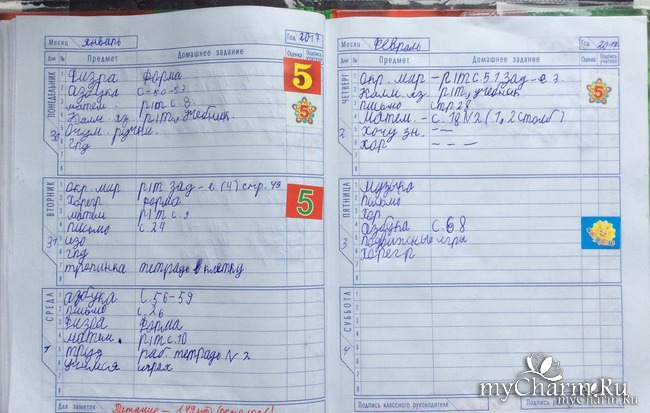 Месяц январь Год 2017
Дни № Предмет Домашнее задание Оценка Подпись учителя
ПОНЕДЕЛЬНИК
30
1 Физра форма
2 азбука с-50-53
3 матем. р/т с 8
4 Калм. яз р/т, учебник.
5 Очум. ручки.
6 гпд
7
8
5
5
ВТОРНИК
31
1 окр. мир р/т зад-е (4) стр. 49
2 хореогр форма
3 матем р/т с 9
4 письмо с 24
5 изо
6 гпд
7
8 тропинка тетрадь в клетку
5
СРЕДА
1
1 азбука с. 56-59
2 письмо с. 26
3 физра форма
4 матем. р/т с. 10
5 труд раб. тетрадь №2
6 учимся играх
7
8
Для заметок Питание - 149
Месяц Февраль Год 2017
Дни № Предмет Домашнее задание Оценка Подпись учителя
ЧЕТВЕРГ
2
1 Окр. мир - р/т с. 51 зад-е 3.
2 Калм. яз. р/т, учебник
3 письмо стр 28
4 Матем. - с. 18 №2 (1, 2 столб)
5 Хочу зн. - --
6 хор - - -
7
8
5
ПЯТНИЦА
3
1 музыка
2 письмо
3 хор
4 азбука с. 68
5 подвижные игры
6 хореогр
7
8
СУББОТА
4
1
2
3
4
5
6
7
8
Подпись классного руководителя
myCharm.Ru
myCharm.Ru